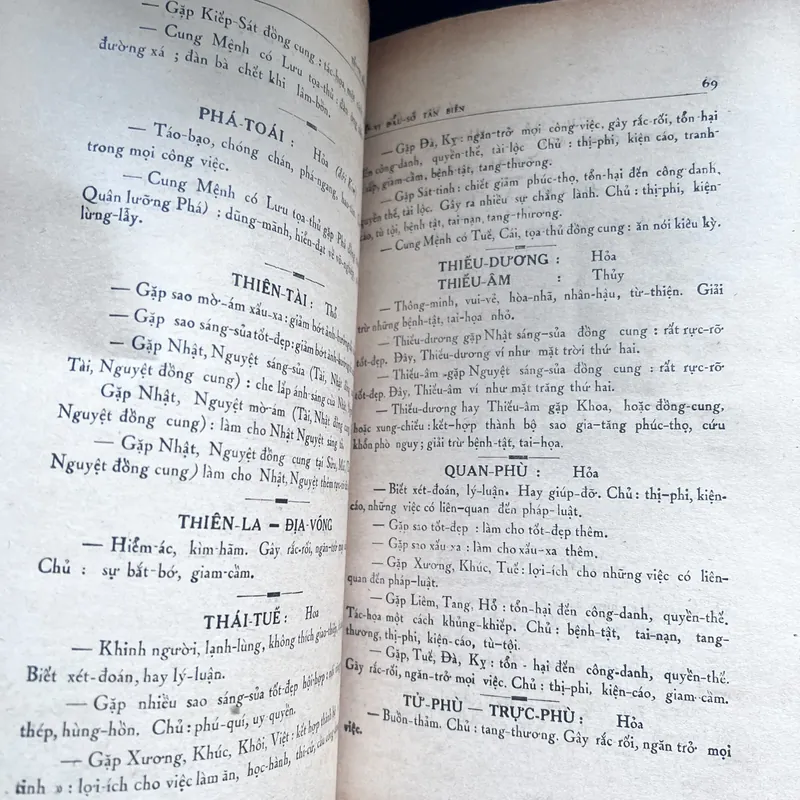 — Gặp Kiếp-Sát đồng cung : tác-họa một
— Cung Mệnh có Lưu tọa-thủ : đàn ông
đường xá ; đàn bà chết khi lâm-bồn.
PHÁ-TOÁI : Hỏa
— Táo-bạo, chóng chán, phá-ngang,
trong mọi công việc.
— Cung Mệnh có Lưu tọa-thủ gặp Phá đồng
Quân lưỡng Phá) : dũng-mãnh, hiển-đạt về võ-nghiệp
lừng-lẫy.
THIÊN-TÀI : Thổ
— Gặp sao mờ-ám xấu-xa : giảm bớt ảnh-hưởng
— Gặp sao sáng-sủa tốt-đẹp : giảm bớt ảnh-hưởng
— Gặp Nhật, Nguyệt sáng-sủa (Tài, Nhật đồng
Tài, Nguyệt đồng cung) : che lấp ánh-sáng của Nhật
Gặp Nhật, Nguyệt mờ-ám (Tài, Nhật đồng cung
Nguyệt đồng cung) : làm cho Nhật Nguyệt sáng
— Gặp Nhật, Nguyệt đồng cung tại Sửu, Mùi
Nguyệt đồng cung) làm cho Nhật, Nguyệt thêm rực-rỡ
THIÊN-LA – ĐỊA-VÕNG
— Hiểm-ác, kìm-hãm. Gây rắc-rối, ngăn-trở mọi
Chủ : sự bắt-bớ, giam-cầm.
THÁI-TUẾ : Hoa
— Khinh người, lạnh-lùng, không thích giao-thiệp
Biết xét-đoán, hay lý-luận.
— Gặp nhiều sao sáng-sủa tốt-đẹp hội-hợp :
thép, hùng-hồn. Chủ : phú-quí, uy quyền.
— Gặp Xương, Khúc, Khôi, Việt : kết hợp thành bộ
tinh » : lợi-ích cho việc làm ăn, học-hành, thi-cử, cầu công
69
VI ĐẨU-SỐ TÂN BIÊN
— Gặp Đà, Kỵ : ngăn-trở mọi công-việc, gây rắc-rối, tổn-hại
đến công-danh, quyền-thế, tài-lộc Chủ : thị-phi, kiện cáo, tranh-
chấp, giam-cầm, bệnh-tật, tang-thương.
— Gặp Sát-tinh : chiết giảm phúc-thọ, tổn-hại đến công-danh,
quyền thế, tài lộc. Gây ra nhiều sự chẳng lành. Chủ : thị-phi, kiện-
cáo, tù tội, bệnh-tật, tai-nạn, tang-thương.
— Cung Mệnh có Tuế, Cái, tọa-thủ đồng cung : ăn nói kiêu kỳ.
THIẾU-DƯƠNG : Hỏa
THIẾU-ÂM : Thủy
— Thông-minh, vui-vẻ, hòa-nhã, nhân-hậu, từ-thiện. Giải
trừ những bệnh-tật, tai-họa nhỏ.
— Thiếu-dương gặp Nhật sáng-sủa đồng cung : rất rực-rỡ
tốt-đẹp. Đây, Thiếu-dương ví như mặt trời thứ hai.
— Thiếu-âm gặp Nguyệt sáng-sủa đồng cung : rất rực-rỡ
tốt-đẹp. Đây, Thiếu-âm ví như mặt trăng thứ hai.
— Thiếu-dương hay Thiếu-âm gặp Khoa, hoặc đồng-cung,
hoặc xung-chiếu : kết-hợp thành bộ sao gia-tăng phúc-thọ, cứu
khốn phò nguy ; giải trừ bệnh-tật, tai-họa.
QUAN-PHÙ : Hỏa
— Biết xét-đoán, lý-luận. Hay giúp-đỡ. Chủ : thị-phi, kiện-
cáo, những việc có liên-quan đến pháp-luật.
— Gặp sao tốt-đẹp : làm cho tốt-đẹp thêm.
— Gặp sao xấu xa : làm cho xấu-xa thêm.
— Gặp Xương, Khúc, Tuế : lợi-ích cho những việc có liên-
quan đến pháp-luật.
— Gặp Liêm, Tang, Hổ : tổn-hại đến công-danh, quyền-thế.
Tác-họa một cách khủng-khiếp. Chủ : bệnh-tật, tai-nạn, tang-
thương, thị-phi, kiện-cáo, tù-tội.
— Gặp, Tuế, Đà, Kỵ : tổn - hại đến công-danh, quyền-thế.
Gây rắc-rối, ngăn-trở mọi việc. Chủ : thị-phi, kiện-cáo, giam cầm.
TỬ-PHÙ — TRỰC-PHÙ : Hỏa
— Buồn-thảm. Chủ : tang-thương. Gây rắc rối, ngăn trở mọi
việc.